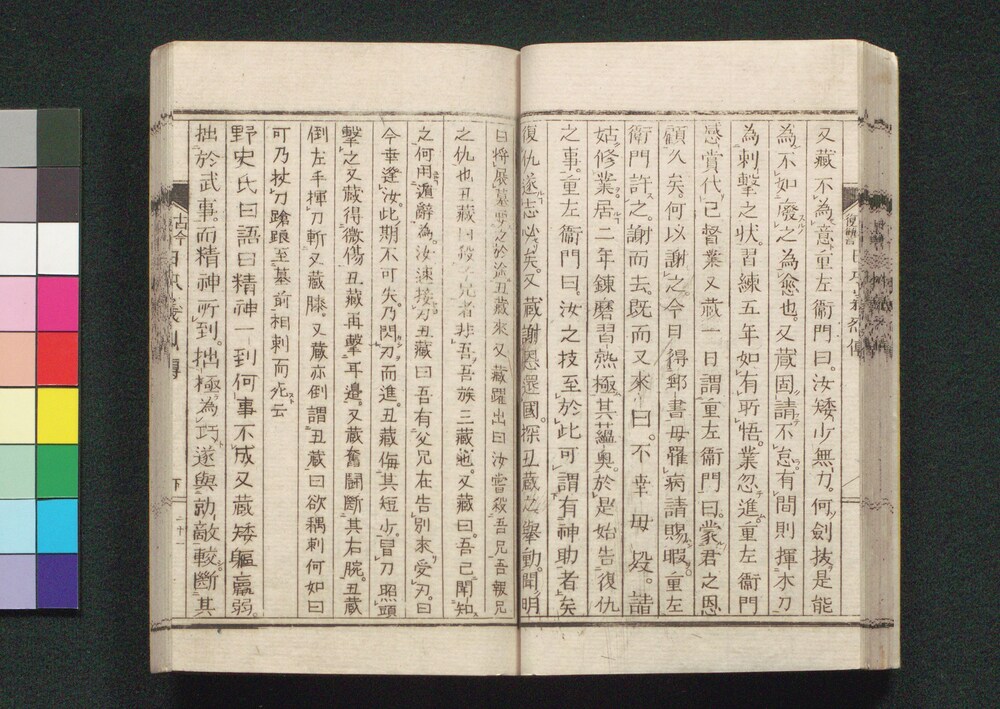 又藏不為意重左衞門曰。汝矮少無力。何劍抜是能
為。不如廢之為愈也。又藏固請不怠有間則揮木刀
為刺擊之状。習練五年如有所悟。業忽進。重左衞門
感賞代己督業又藏一日謂重左衞門曰。蒙君之恩
顧久矣。何以謝之。今日得郵書母罹病請賜暇。重左
衞門許之。謝而去。既而又來曰。不幸母歿。請
姑修業。居二年鍊磨習熟極其蘊奧。於是始告復仇
之事。重左衞門曰。汝之技至於此可謂有神助者矣
復仇遂志必矣。又藏謝恩還國。探丑藏之舉動。聞明
日將展墓要之於途丑藏來又藏躍出曰汝嘗殺吾兄吾報兄
之仇也丑藏曰殺兄者非吾吾族三藏也。又藏曰。吾已聞知
之何用遁辭為。汝速接刀丑藏曰吾有父兄在告別來受刃。曰
今幸逢汝。此期不可失。乃閃刀而進。丑藏侮其短少。冒刀照頭
擊之又藏得微傷丑藏再擊耳邉。又藏奮鬪斷其右腕。丑藏
倒左手揮刀斬又藏膝。又藏亦倒謂丑藏曰欲耦刺何如曰
可乃杖刀蹌踉至墓前相刺而死云
野史氏曰語曰精神一到何事不成又藏矮軀羸弱。
拙於武事。而精神所到。拙極為巧。遂與勍敵較斷其
下
二十一